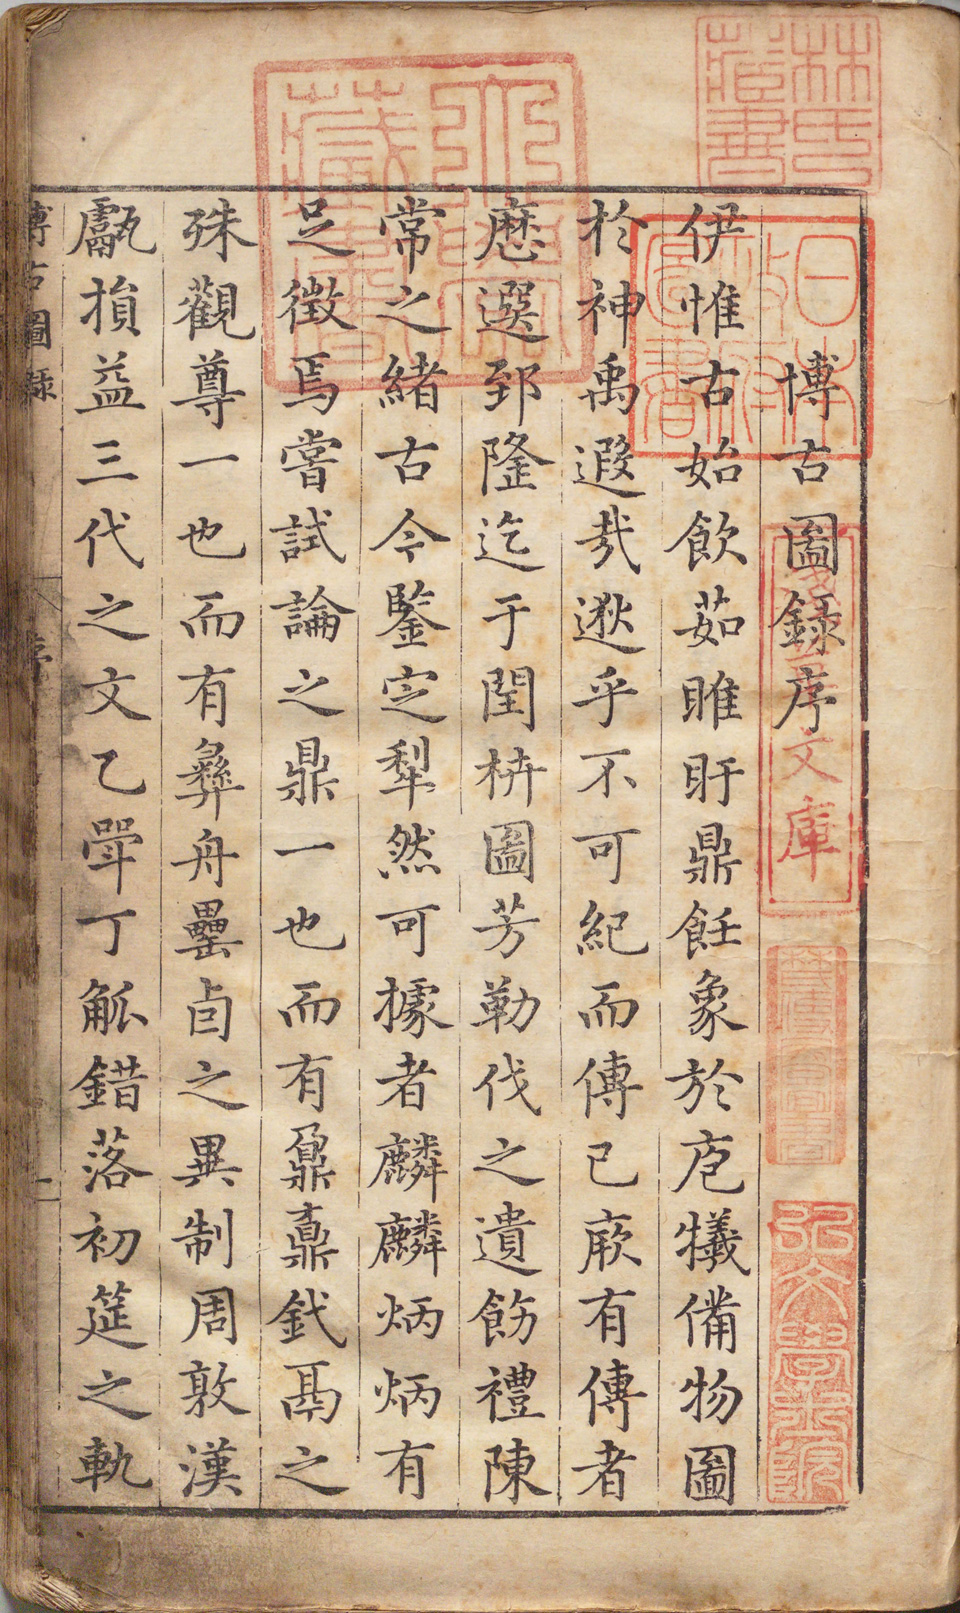 博古圖錄序
伊惟古始飲茹睢盱鼎飪象於庖犧備物圖
於神禹遐哉逖乎不可紀而傳已厥有傳者
歷選郅隆迄于閏枿圖芳勒伐之遺飭禮陳
常之緒古今鑒定犁然可據者麟麟炳炳有
足徵焉嘗試論之鼎一也而有鼐鼒釴鬲之
殊觀尊一也而有彝舟罍卣之異制周敦漢
甗損益三代之文乙斝丁觚錯落初筵之軌
博古圖錄
序
一
林氏藏書
日本政府圖書
文庫
弘文學士院